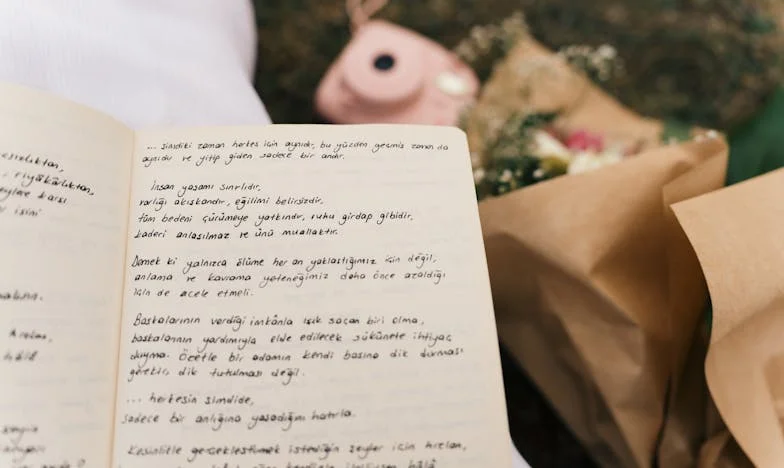 riyakârlıktan,
karşı
işini
... şimdiki zaman herkes için aynıdır, bu yüzden geçmiş zaman da
aynıdır ve yitip giden sadece bir andır.
İnsan yaşamı sınırlıdır,
varlığı akışkandır, eğilimi belirsizdir,
tüm bedeni çürümeye yatkındır, ruhu girdap gibidir,
kaderi anlaşılmaz ve ünü muallaktır.
Demek ki yalnızca ölüme her an yaklaştığımız için değil,
anlama ve kavrama yeteneğimiz daha önce azaldığı
için de acele etmeli.
Başkalarının verdiği imkânla ışık saçan biri olma,
başkalarının yardımıyla elde edilecek sükûnete ihtiyaç
duyma. Özetle bir adamın kendi başına dik durması
gerekir, dik tutulması değil.
... herkesin şimdide,
sadece bir anlığına yaşadığını hatırla.
Kesinlikle gerçekleştirmek istediğin şeyler için hızlan,